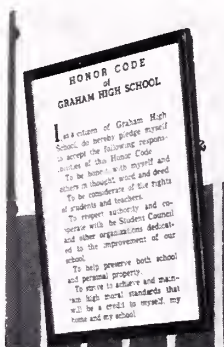 HONOR CODE
of
GRAHAM HIGH SCHOOL
I, as a citizen of Graham High
School, do hereby pledge myself
to accept the following respons-
ibilities of this Honor Code
To be honest with myself and
others in thought, word and deed
To be considerate of the rights
of students and teachers.
To respect authority and co-
operate with the Student Council
and other organizations dedicat-
ed to the improvement of our
school.
To help preserve both school
and personal property.
To strive to achieve and main-
tain high moral standards that
will be a credit to myself, my
home and my school